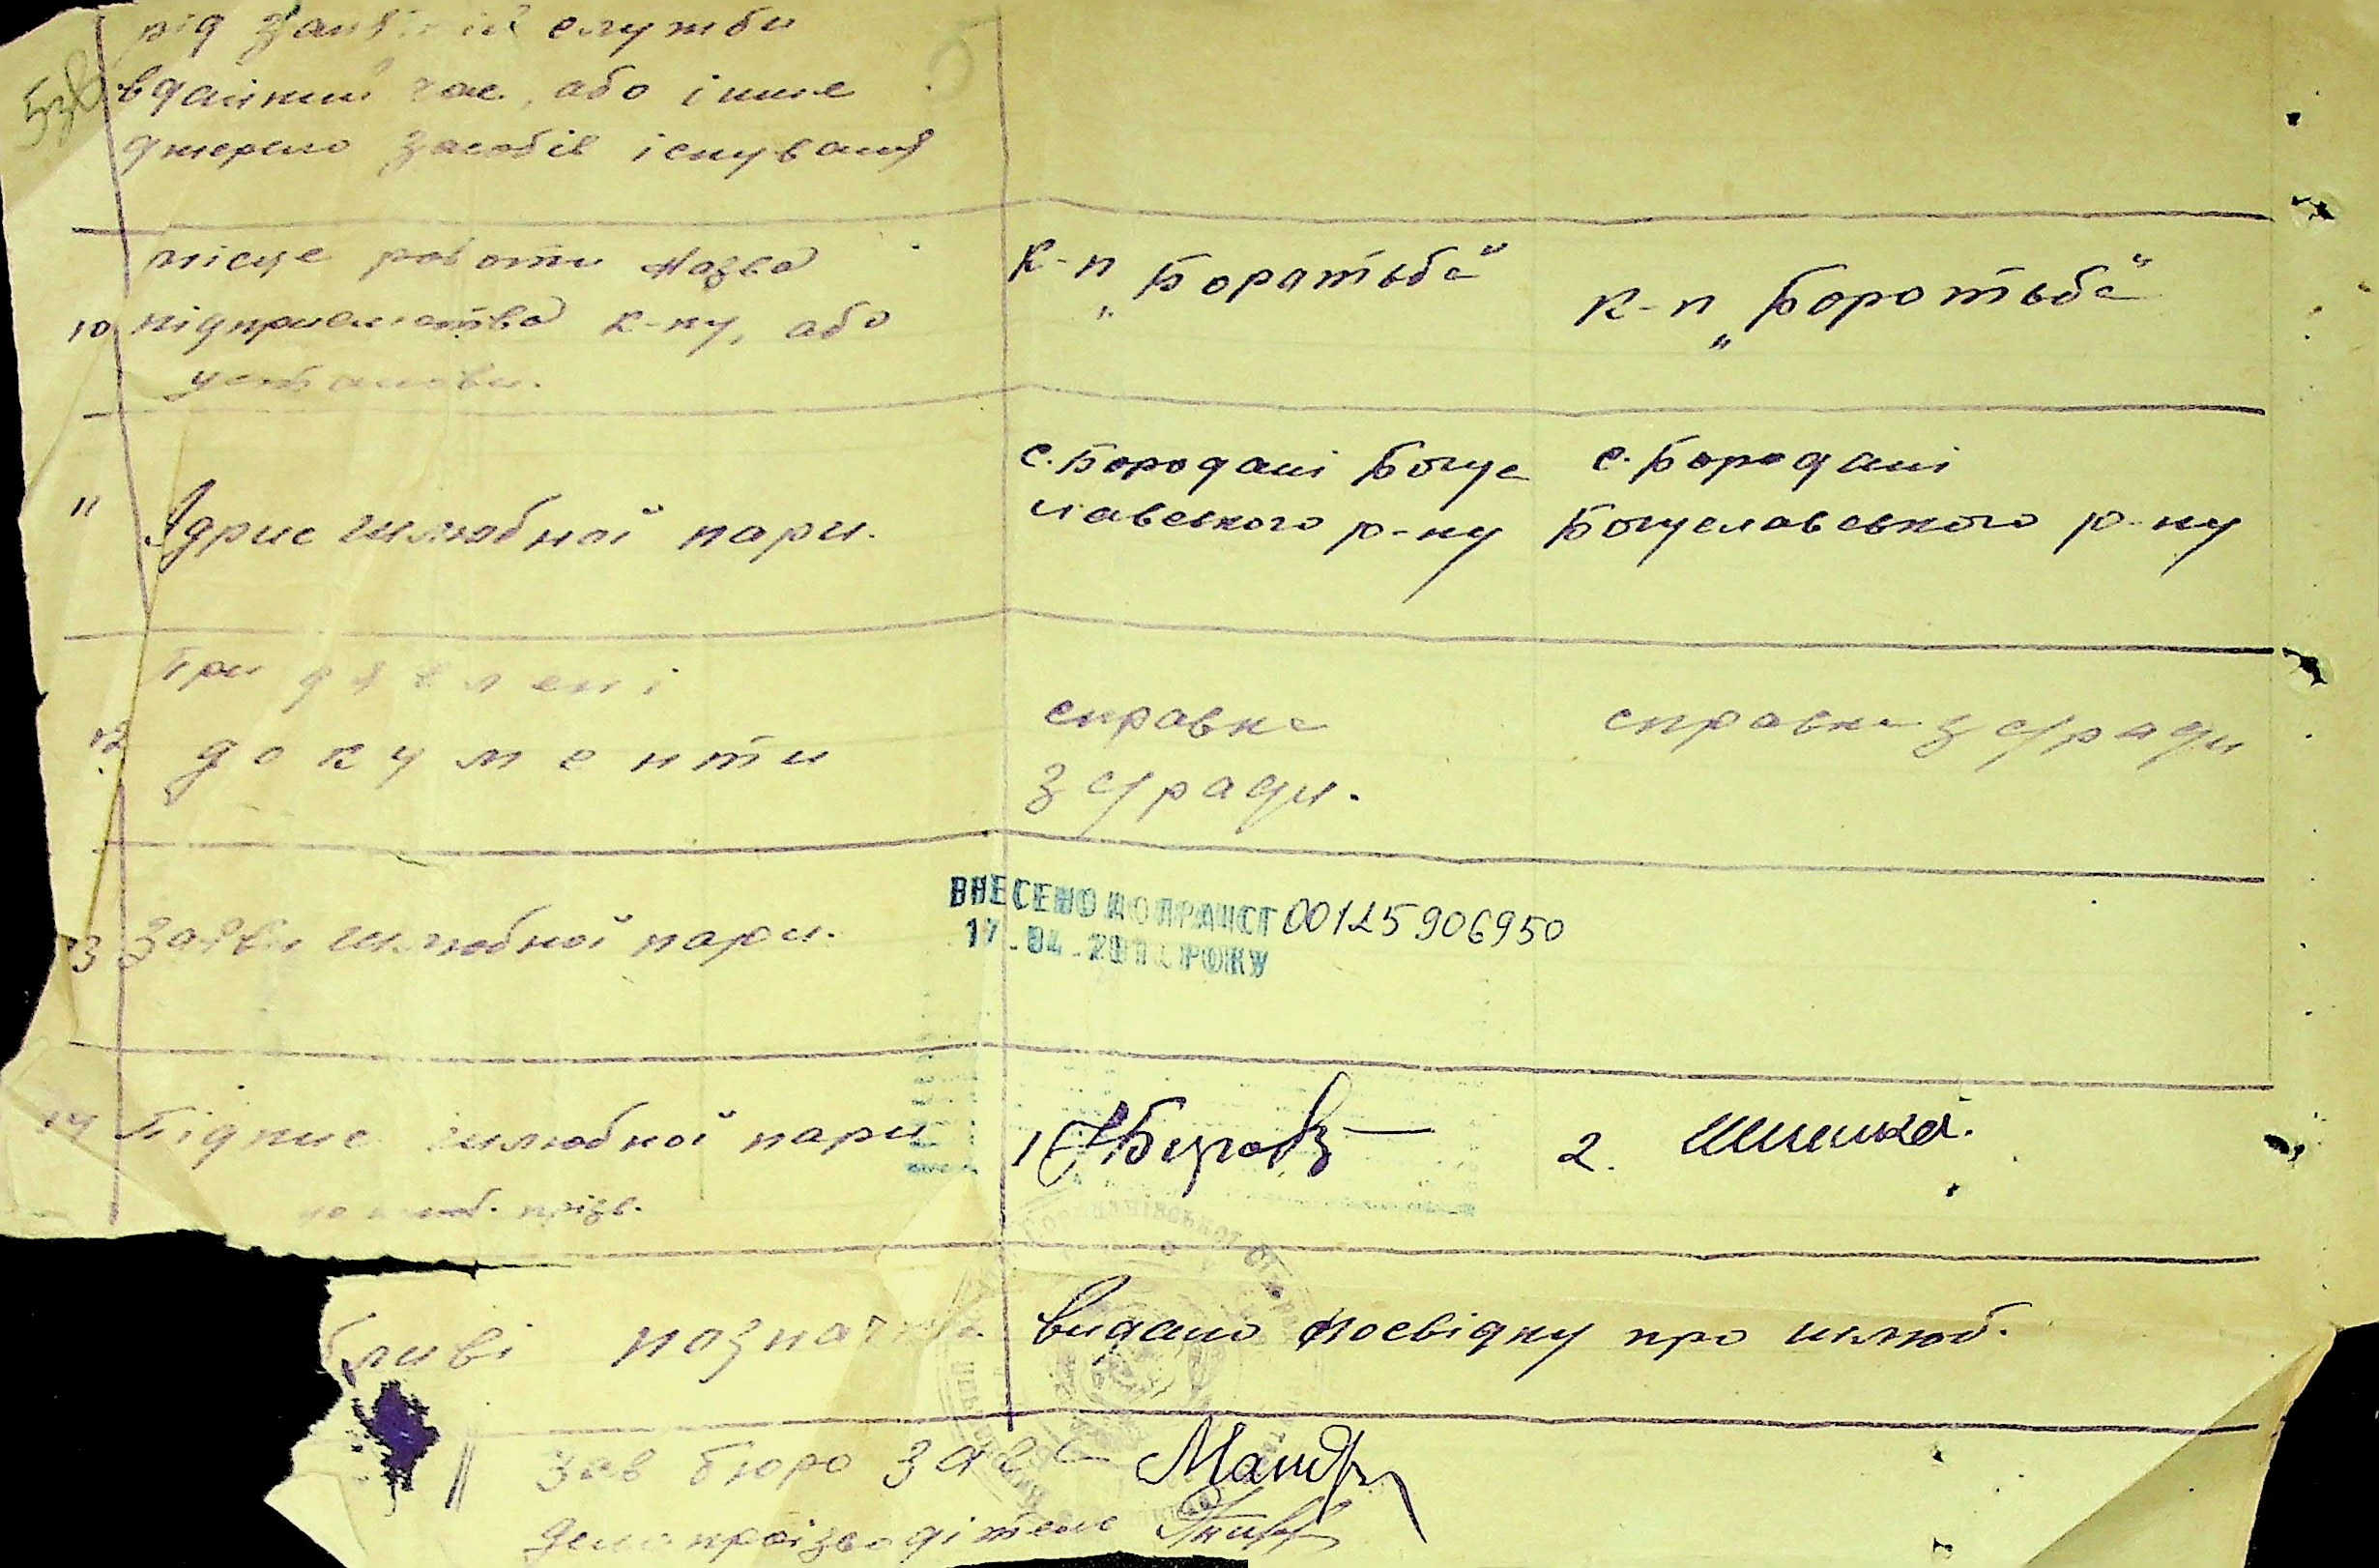 рід занятій служби
в даінний час, або інше
джерело засобів існуваня
10 місце роботи назва
підприємства к-пу, або
установи.
к-п „Боратьба"
к-п „Боротьба"
11 Адрис шлюбної пари.
с. Бородані Богус
лавського р-ну
с. Бородані
Богуславського р-ну
12 Предявлені
документи
справка
з с/ради.
справка з с/ради
13 Заяви шлюбної пари.
ВНЕСЕНО ДО ДРАЦСГ 00125906950
17.04.201 РОКУ
14 Підпис шлюбної пари
шлюб. прізв.
1
2. Шишка
бливі позначки
видано посвідку про шлюб.
Зав бюро ЗАГС
Делопроізводітель